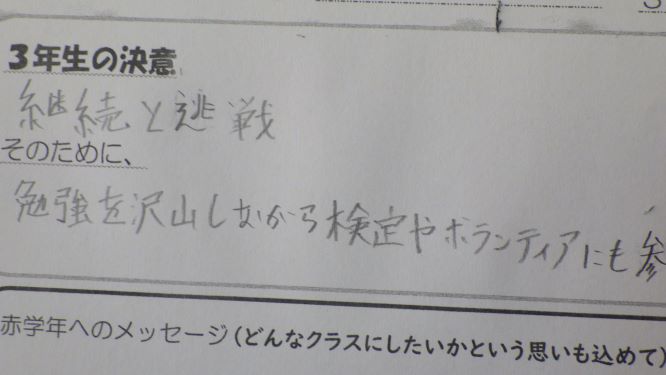 3年生の決意
継続と逃戦
そのために、
勉強を沢山しながら検定やボランティアにも参
赤学年へのメッセージ(どんなクラスにしたいかという思いも込めて)